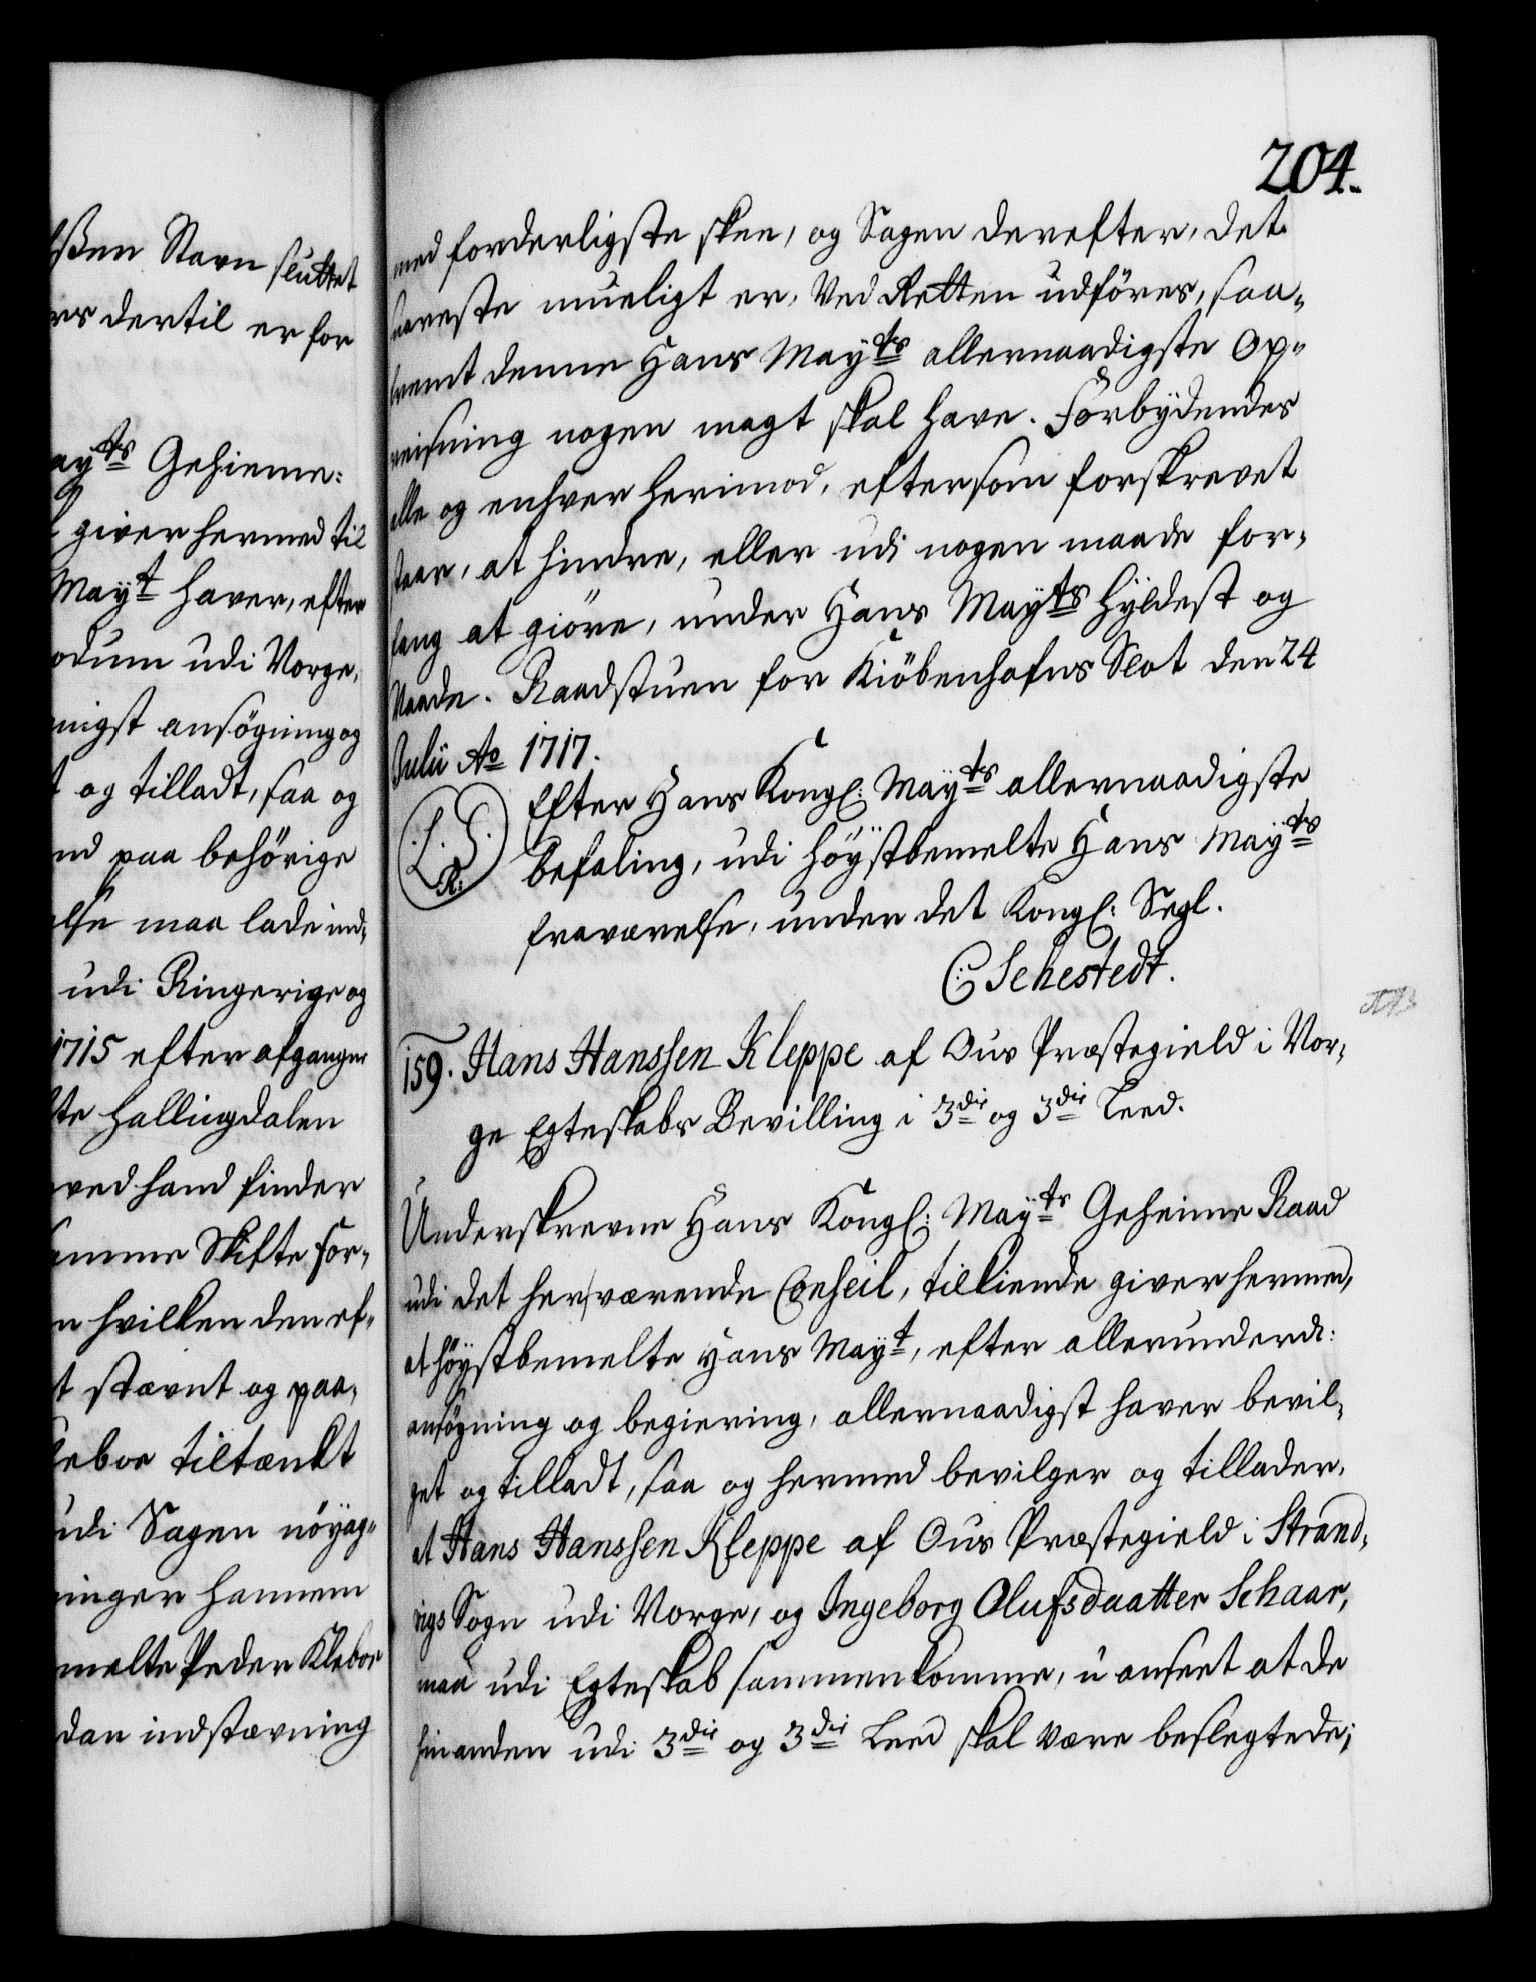 ßen Stavn sluttet
rs dertil er for
ayts Geheime:
giver hermed til
Mayt haver, efter
odum udi Norge,
nigst ansøgning og
t og tilladt, saa og
nd paa behörige
else maa lade ind,
udi Ringerige og
1715 efter afgangne
te Hallingdalen
ved hand finder
amme Skifte for,
n hvilken den ef,
t stævnt og paa,
lebor tiltænkt
udi Sagen nöyag,
ninger hannem
melte Peder Klebor
dan indstævning
204.
med forderligste skee, og Sagen derefter, det
snareste mueligt er, ved Retten udföres, saa,
fremt denne Hans Mayts allernaadigste Op,
reisning nogen magt skal have. Forbydendes
alle og enhver herimod, eftersom forskrevet
staar, at hindre, eller udi nogen maade for,
fang at giöre, under Hans Mayts Hyldest og
Naade. Raadstuen for Kiöbenhafns Slot den 24
Julii Ao 1717.
L. S.
R:
Efter Hans Kongl: Mayts allernaadigste
befaling, udi höystbemelte Hans Mayts
fraværelse, under det Kongl: Segl.
C: Sehestedt.
159. Hans Hanssen Kleppe af Ous Præstegield i Nor,
ge Egteskabs Bevilling i 3die og 3die Leed.
Underskrevne Hans Kongl: Mayts Geheime Raad
udi det herværende Conseil, tilkiende giver hermed,
at höystbemelte Hans Mayt, efter allerunderd:
ansögning og begiering, allernaadigst haver bevil,
get og tilladt, saa og hermed bevilger og tillader,
at Hans Hanssen Kleppe af Ous Præstegield i Strand,
vigs Sogn udi Norge, og Ingeborg Olufsdaatter Schaar,
maa udi Egteskab sammenkomme, u anseet at de
hinanden udi 3die og 3die Leed skal være beslegtede;